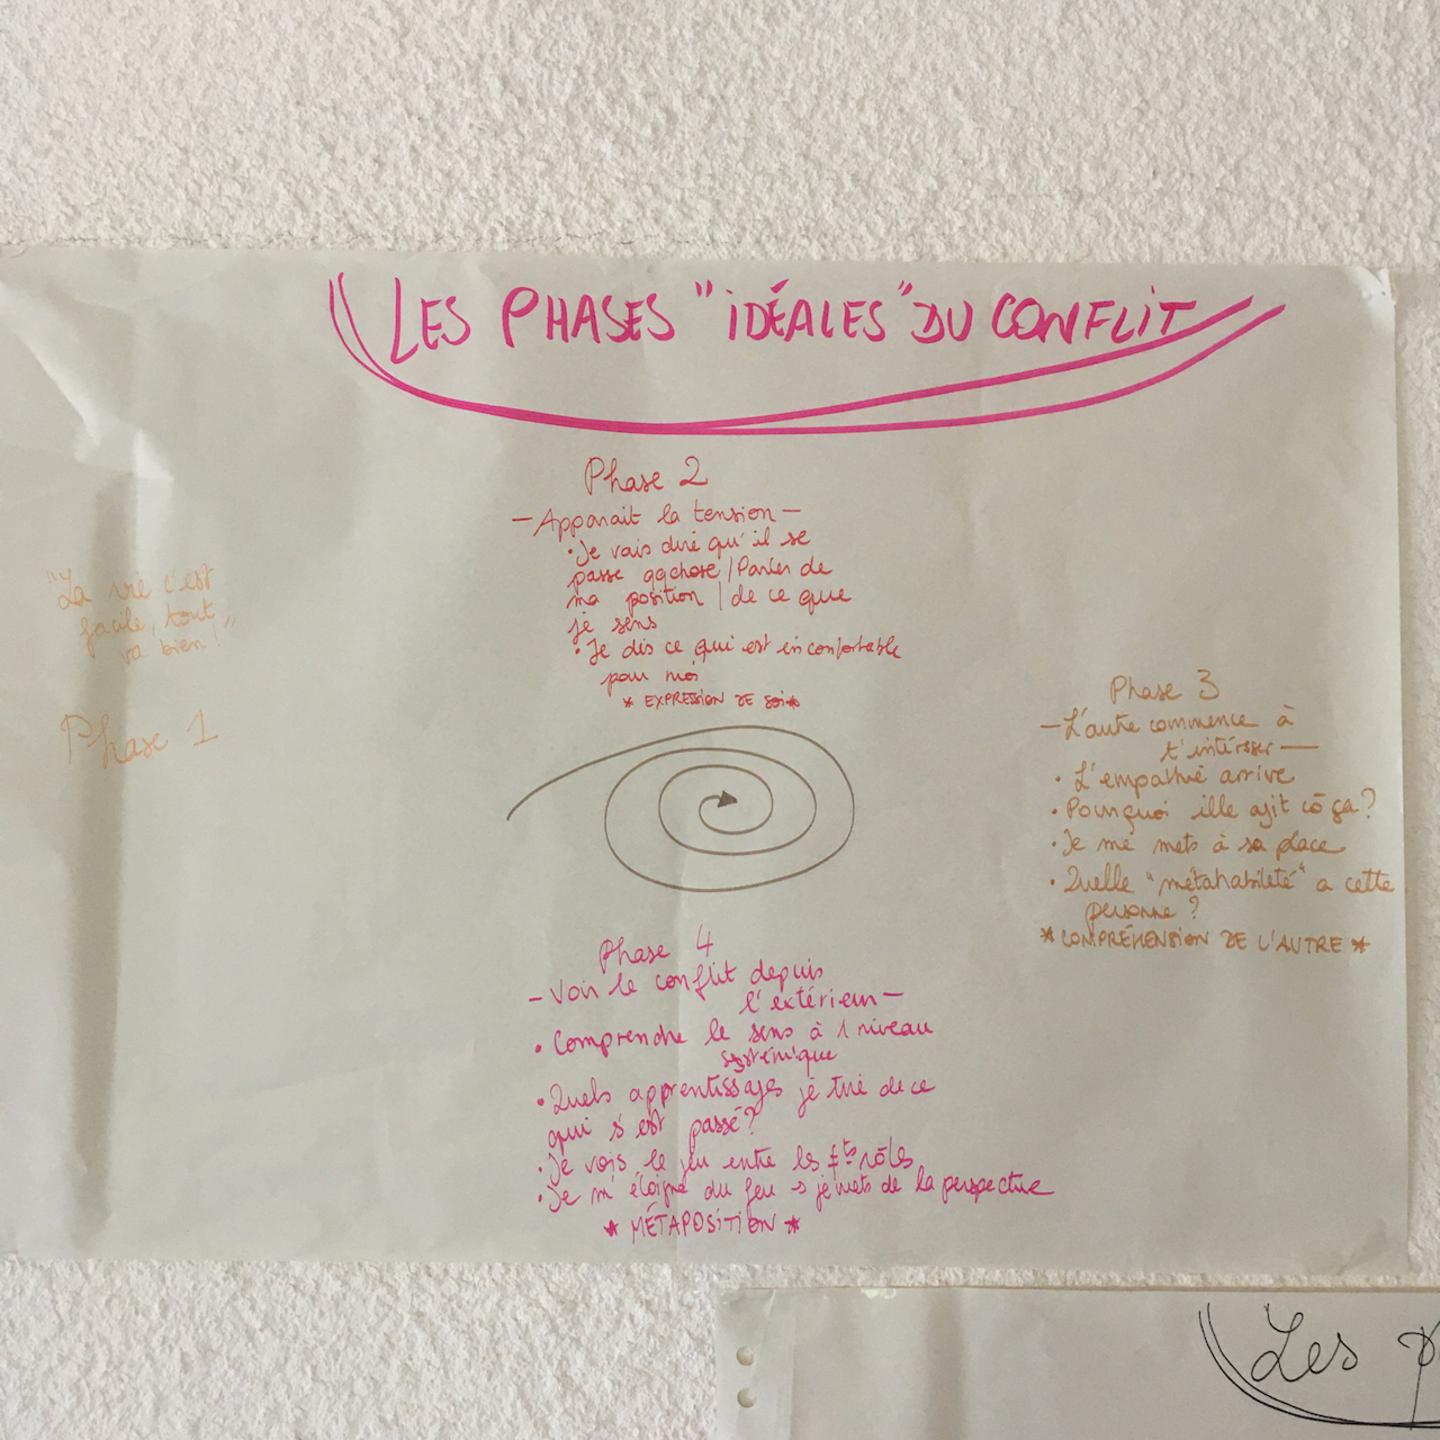 LES PHASES "IDÉALES" DU CONFLIT
"La vie c'est
facile, tout
va bien!"
Phase 1
Phase 2
- Apparait la tension -
• Je vais dire qu'il se
passe qqchose / Parler de
ma position / de ce que
je sens
• Je dis ce qui est inconfortable
pour moi
* EXPRESSION DE SOI *
Phase 3
- L'autre commence à
t'intérsser -
• L'empathie arrive
• Pourquoi ille agit cō ça?
• Je me mets à sa place
• Quelle "métahabileté" a cette
personne ?
* COMPRÉHENSION DE L'AUTRE *
Phase 4
- Voir le conflit depuis
l'extérieur -
• Comprendre le sens à 1 niveau
systémique
• Quels apprentissages je tire de ce
qui s'est passé?
• Je vois le jeu entre les ≠ts rôles
• Je m'éloigne du feu → je mets de la perspective
* MÉTAPOSITION *
Les p